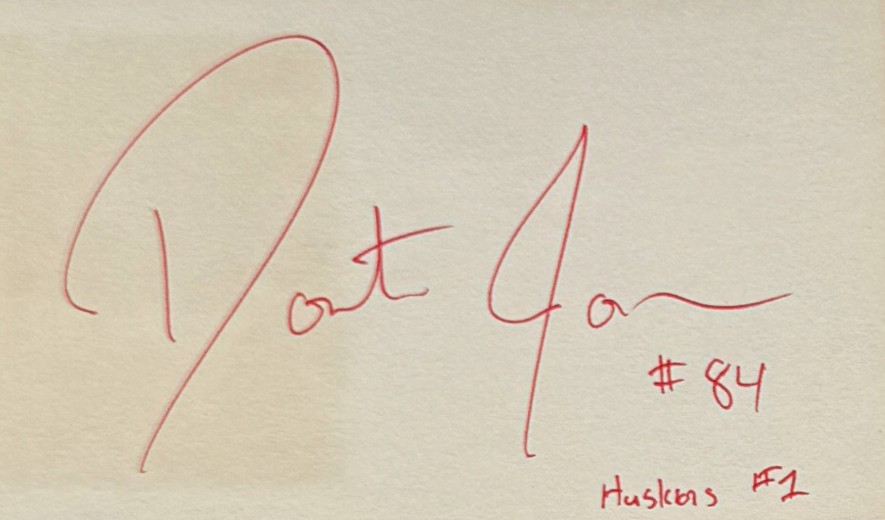 Dont Jon
# 84
Huskers #1